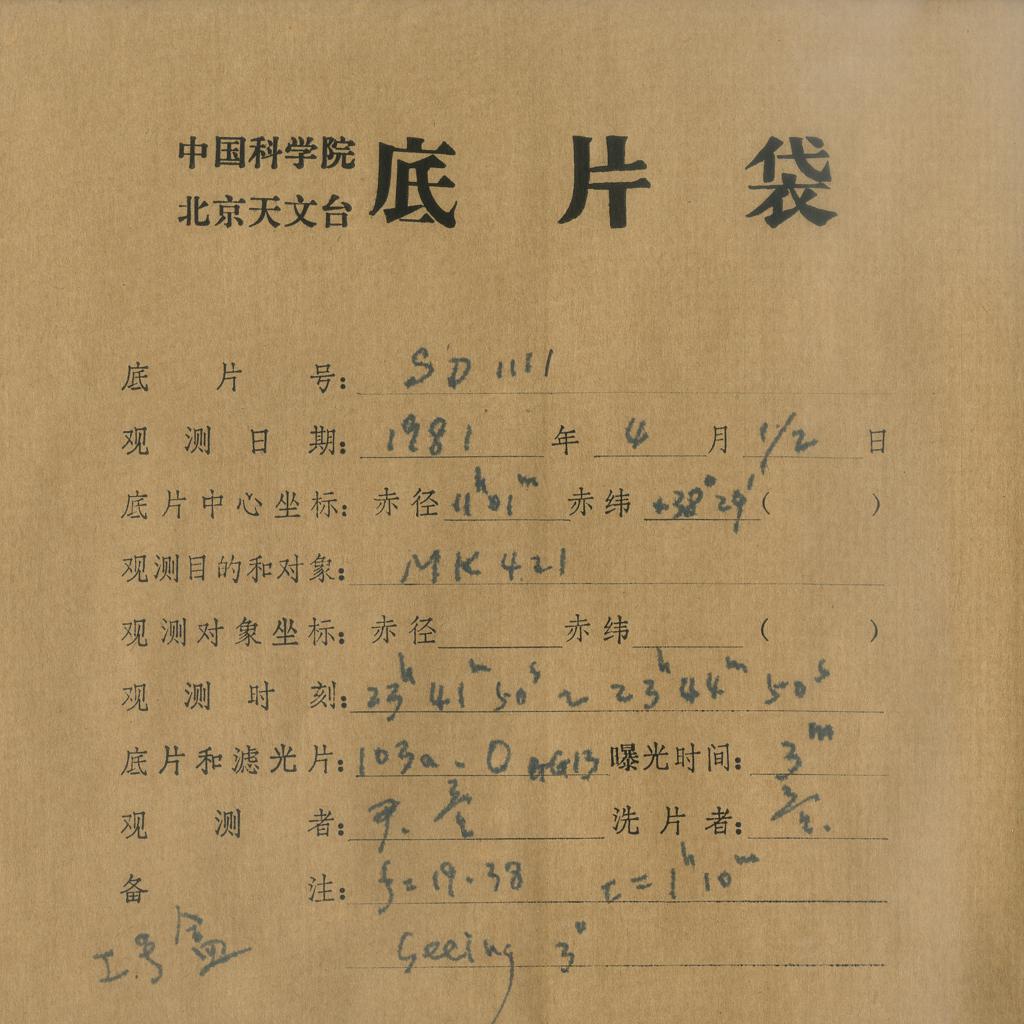 中国科学院
北京天文台
底片袋
底片号: SD 1111
观测日期: 1981 年 4 月 1/2 日
底片中心坐标: 赤径 11h01m 赤纬 +38°29′ ( )
观测目的和对象: MK 421
观测对象坐标: 赤径 赤纬 ( )
观测时刻: 23h 41m 50s ~ 23h 44m 50s
底片和滤光片: 103a-O GG13 曝光时间: 3m
观测者: 洗片者:
备注: f=19.38 t=1h10m
Seeing 3″
号盒